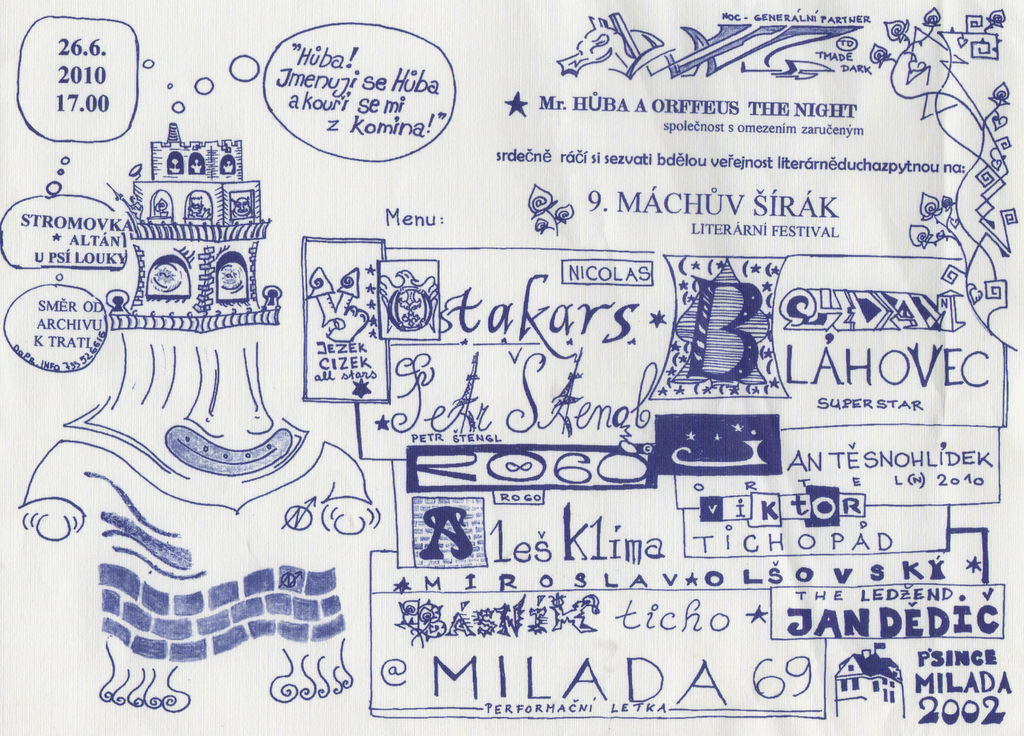 26.6.
2010
17.00
"Hůba!
Jmenuji se Hůba
a kouří se mi
z komína!"
STROMOVKA
* ALTÁN
U PSÍ LOUKY
SMĚR OD
ARCHIVU
K TRATI
NOC - GENERÁLNÍ PARTNER
TD
TMADE
DARK
★ Mr. HŮBA A ORFFEUS THE NIGHT
společnost s omezením zaručeným
srdečně ráčí si sezvati bdělou veřejnost literárněduchazpytnou na:
9. MÁCHŮV ŠÍRÁK
LITERÁRNÍ FESTIVAL
Menu:
JEZEK
CIZEK
all stars
NICOLAS
Otakars
Petr Štengl
PETR ŠTENGL
B
LÁHOVEC
SUPERSTAR
ROGO
ROGO
ANTĚSNOHLÍDEK
O R T E L(N) 2010
Aleš Klíma
VIKTOR
TICHOPÁD
★ MIROSLAV ★ OLŠOVSKÝ ★
BÁSNÍK ticho ★
THE LEDŽEND.
JAN DĚDIČ
@ MILADA 69
PERFORMAČNÍ LETKA
P'SINCE
MILADA
2002